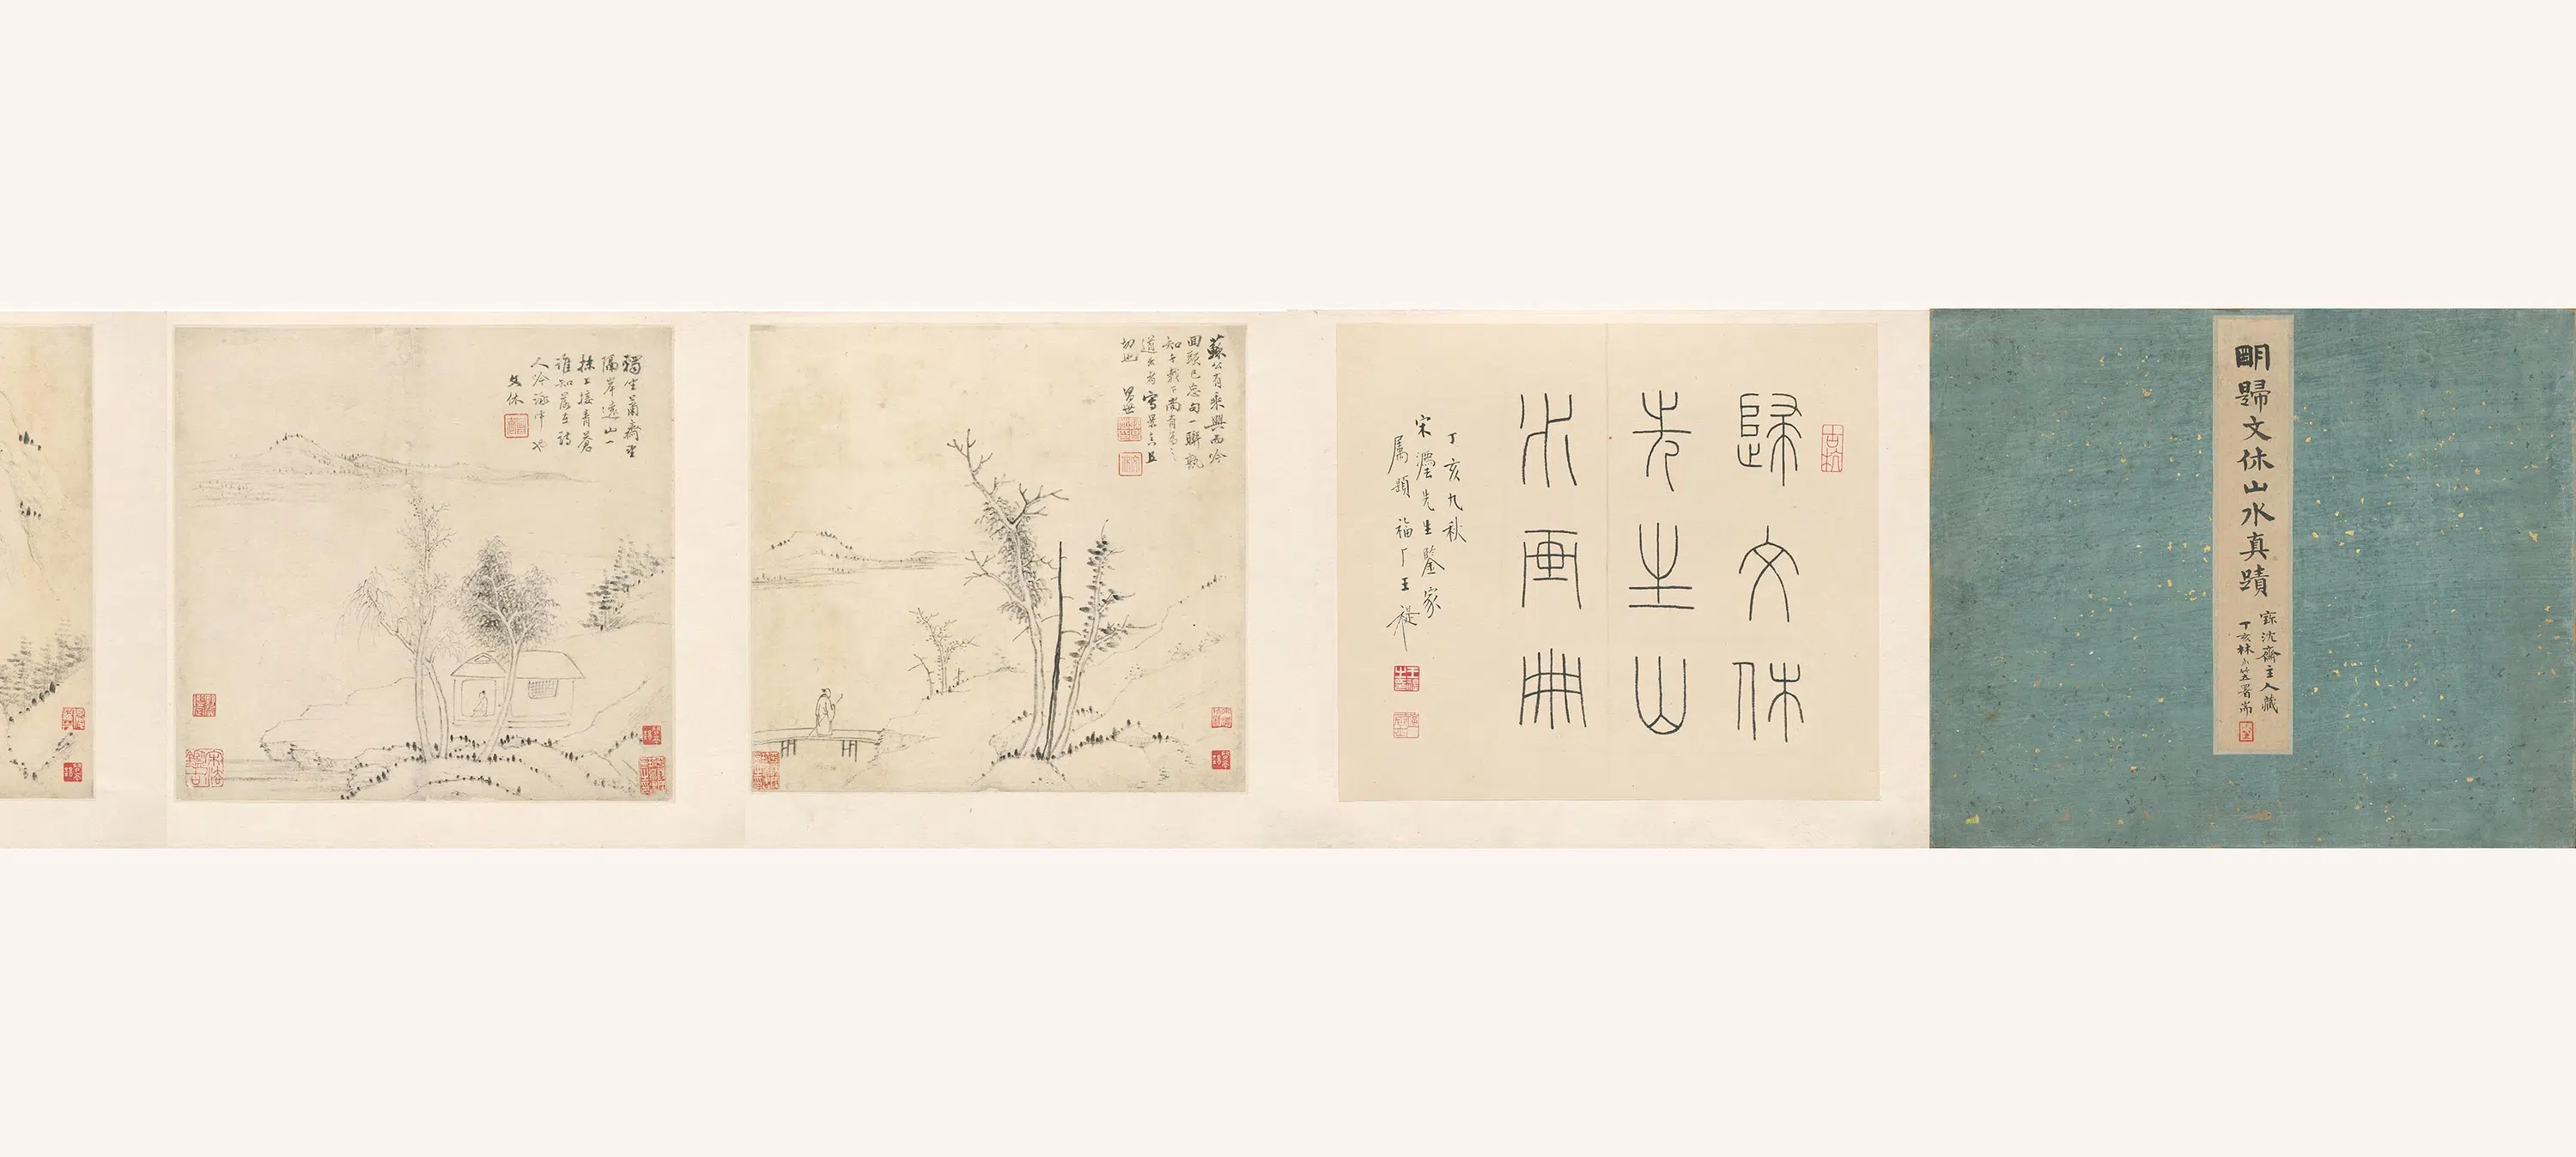 明歸文休山水真蹟
寐沈齋主人藏
丁亥秋小篁署耑
歸文休
先生山
水畫冊
丁亥九秋
宋灃先生鑒家
属題 福厂王禔
蘇公有乘興而吟
回頭已忘句一聯孰
知千載下尚有為之
道出者寫景真且
切也 昌世
獨坐蕭齋里
隔岸遠山一
抹上接青蒼
誰知落在詩
人吟詠中也
文休